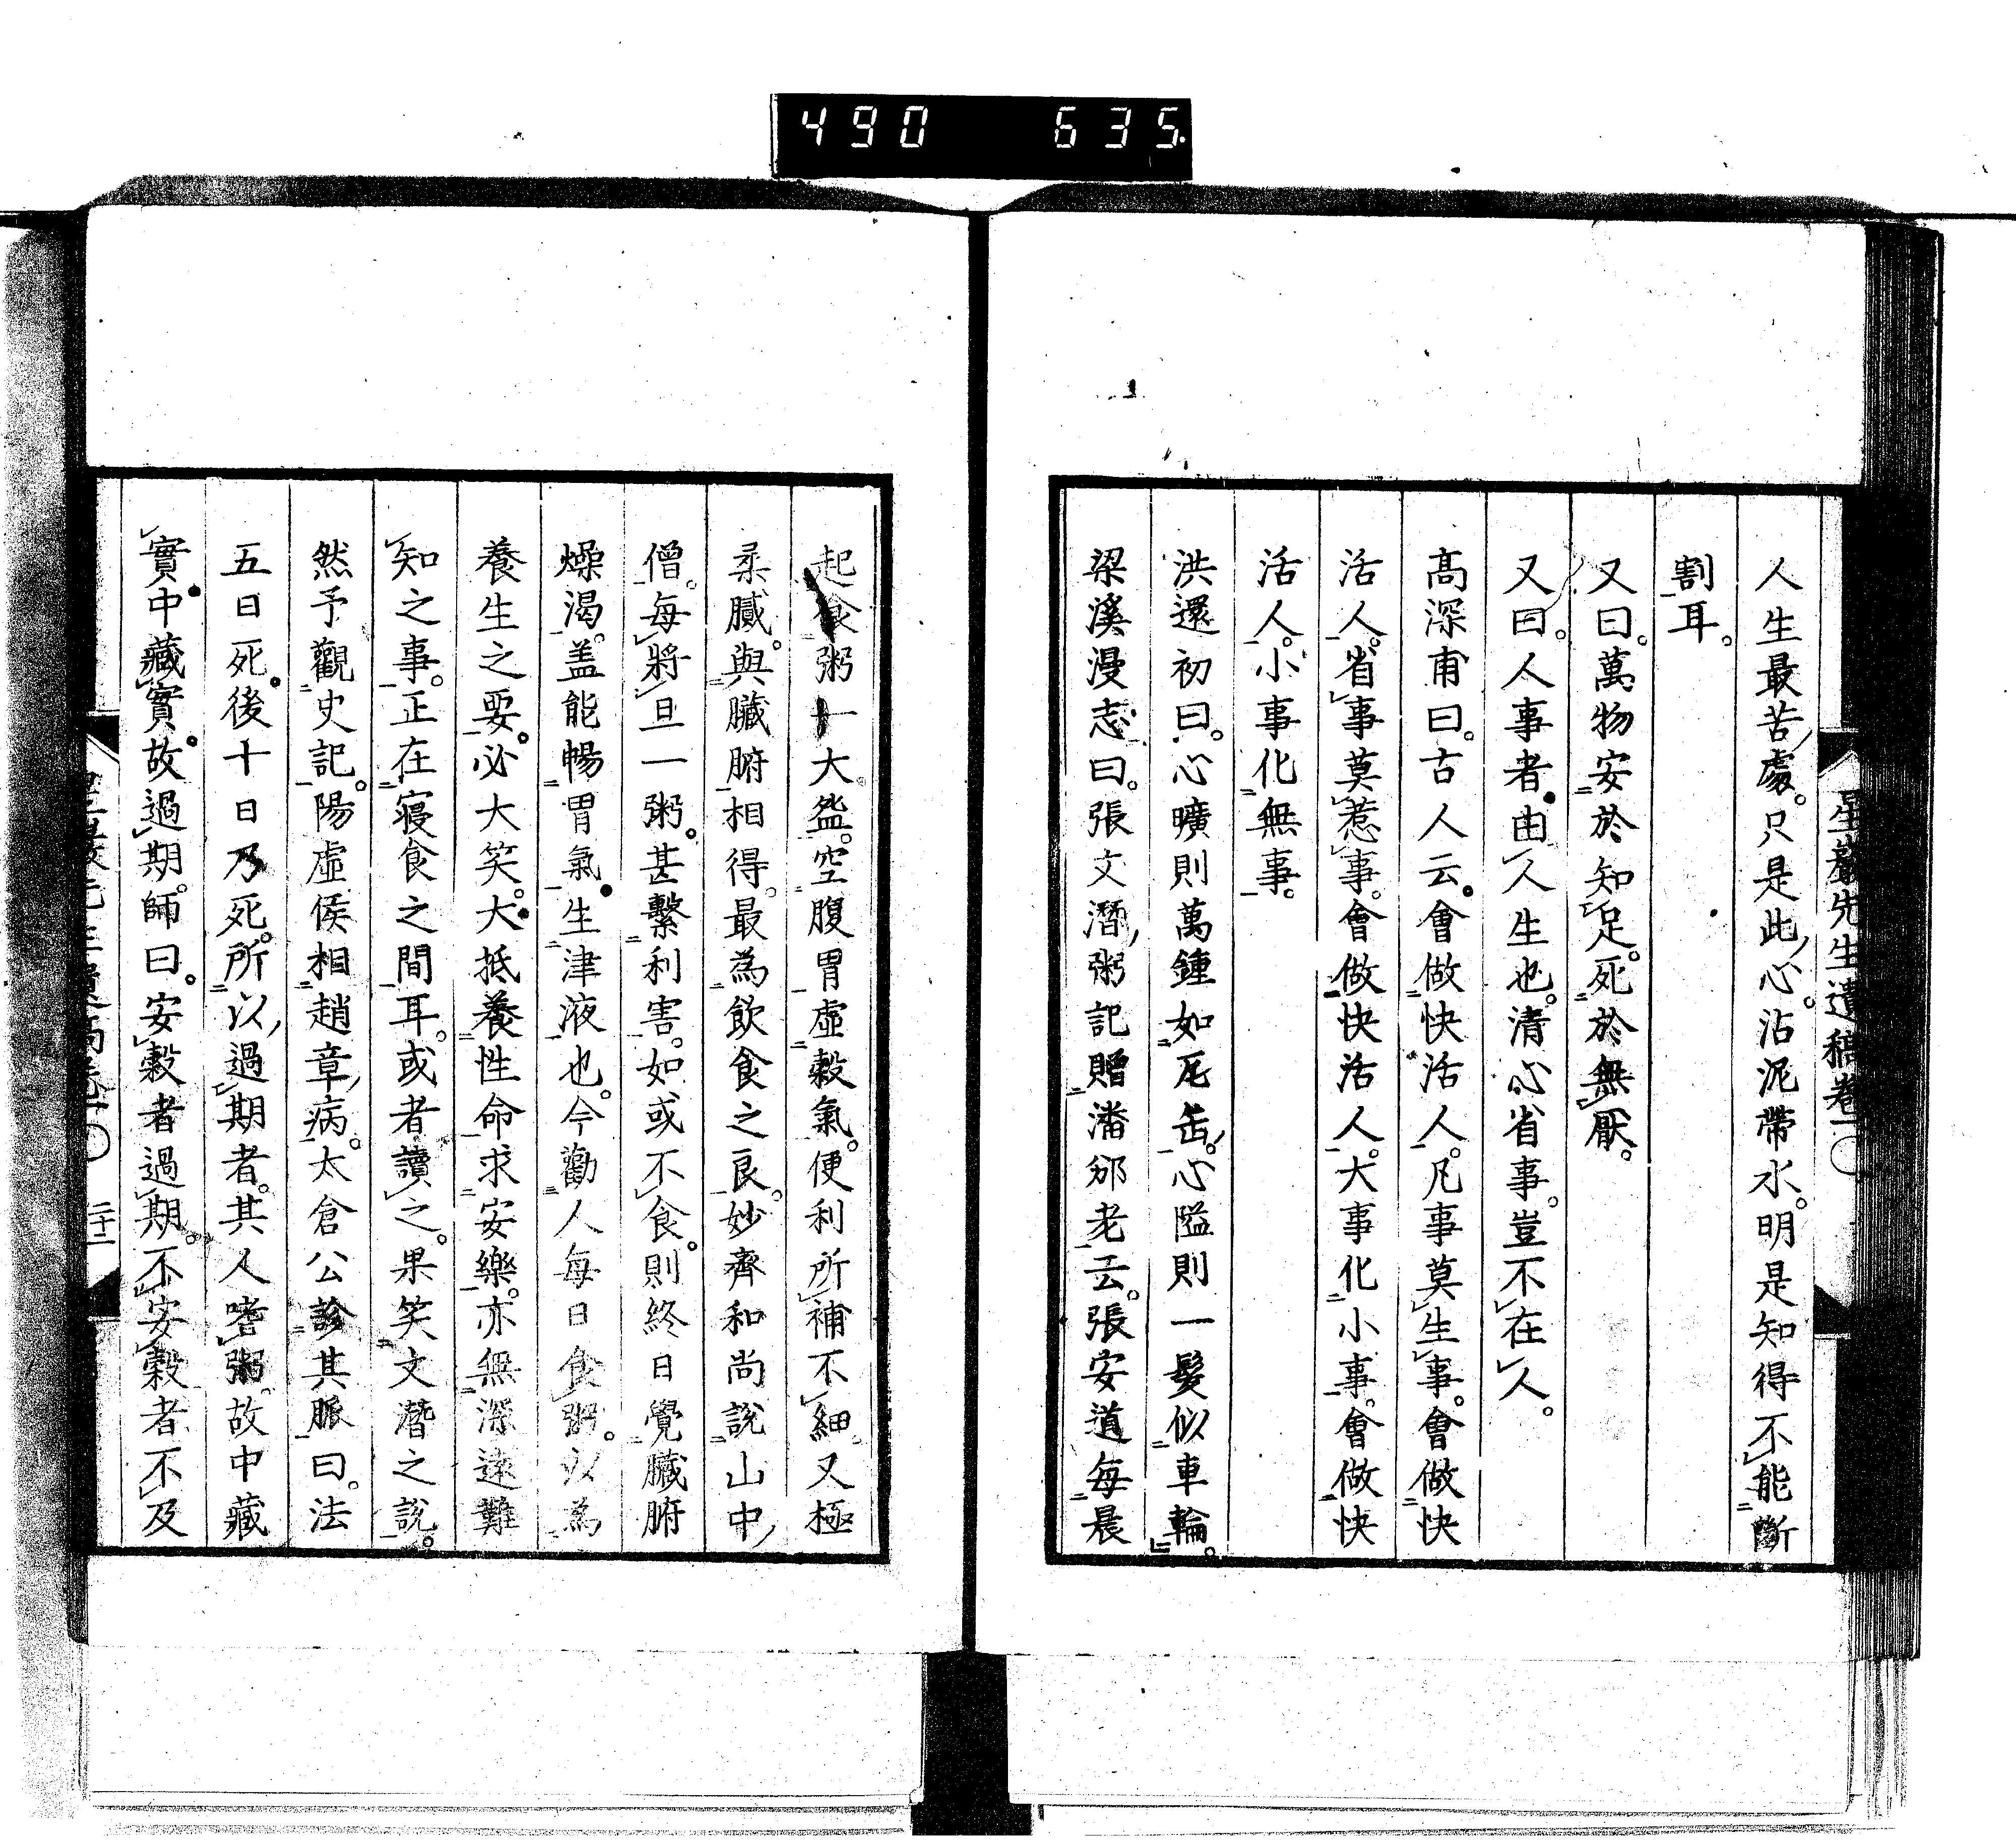 490 635
星巖先生遺稿卷一〇
人生最苦處。只是此心。沾泥帶水。明是知得不能斷
割耳。
又曰。萬物安於知足。死於無厭。
又曰。人事者。由人生也。清心省事。豈不在人。
高深甫曰。古人云。會做快活人。凡事莫生事。會做快
活人。省事莫惹事。會做快活人。大事化小事。會做快
活人。小事化無事。
洪還初曰。心曠則萬鍾如瓦缶。心隘則一髮似車輪。
梁溪漫志曰。張文潛粥記贈潘邠老云。張安道每晨
起食粥一大盌。空腹胃虛。穀氣便利。所補不細。又極
柔膩。與臟腑相得。最為飲食之良。妙齊和尚說山中
僧。每將旦一粥。甚繫利害。如或不食。則終日覺臟腑
燥渴。盖能暢胃氣。生津液也。今勸人每日食粥。以為
養生之要。必大笑。大抵養性命求安樂。亦無深遠難
知之事。正在寢食之間耳。或者讀之。果笑文潛之說。
然予觀史記。陽虛侯相趙章病。太倉公診其脈曰。法
五日死。後十日乃死。所以過期者。其人嗜粥。故中藏
實。中藏實。故過期。師曰。安穀者過期。不安穀者不及
二十二